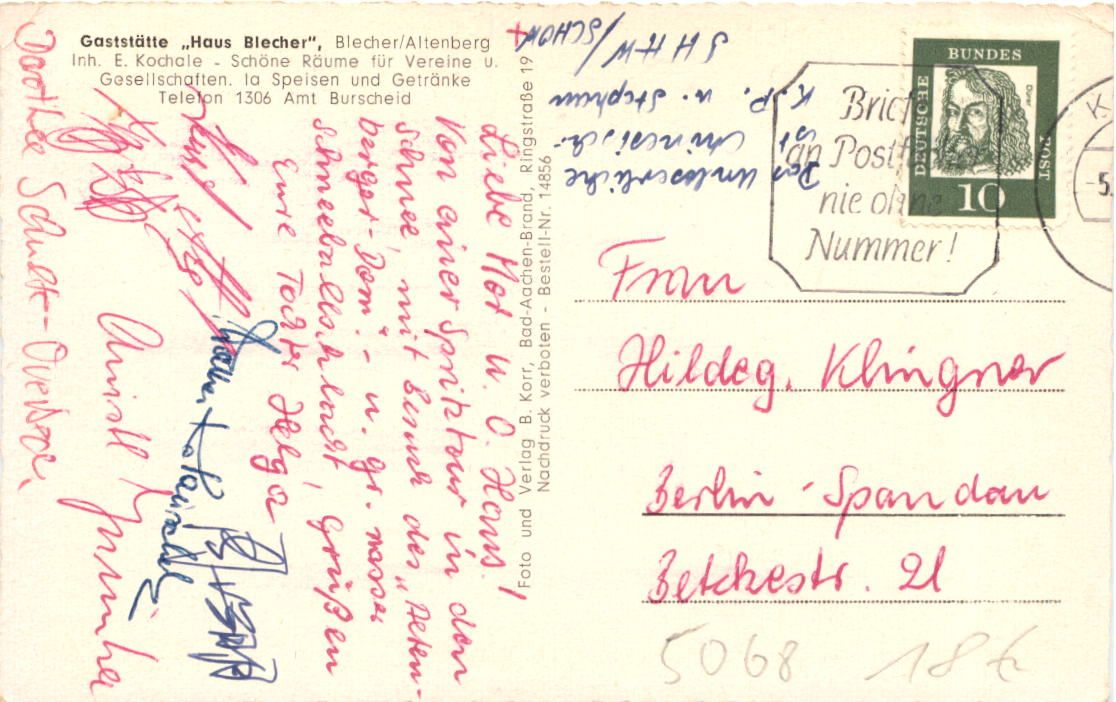 Gaststätte „Haus Blecher", Blecher/Altenberg
Inh. E. Kochale - Schöne Räume für Vereine u.
Gesellschaften. Ia Speisen und Getränke
Telefon 1306 Amt Burscheid
Liebe Mor u. O. Hans!
Von einer Spritztour in den
Schnee, mit Besuch des „Alten-
berger-Dom" - u. gr. nasser
Schneeballschlacht, grüßen
Eure Tochter Helga
Christl
Dorothee
Foto und Verlag B. Korr, Bad-Aachen-Brand, Ringstraße 19
Nachdruck verboten - Bestell-Nr. 14856
Das Unleserliche
ist chinesisch.
K.P. u. Stephan
BUNDES
DEUTSCHE
POST
Dürer
10
Briefe
an Postf
nie ohne
Nummer!
K
-5.
Frau
Hildeg. Klingner
Berlin-Spandau
Betckestr. 21
5068
18